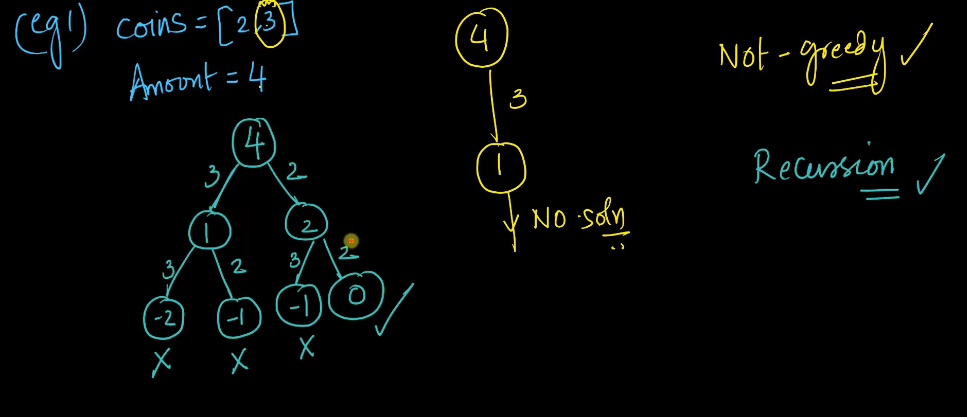 (eg1) coins = [2,3]
Amount = 4
4
3 2
1 2
3 2 3 2
-2 -1 -1 0 ✓
X X X
4
3
1
No soln
Not-greedy ✓
Recussion ✓